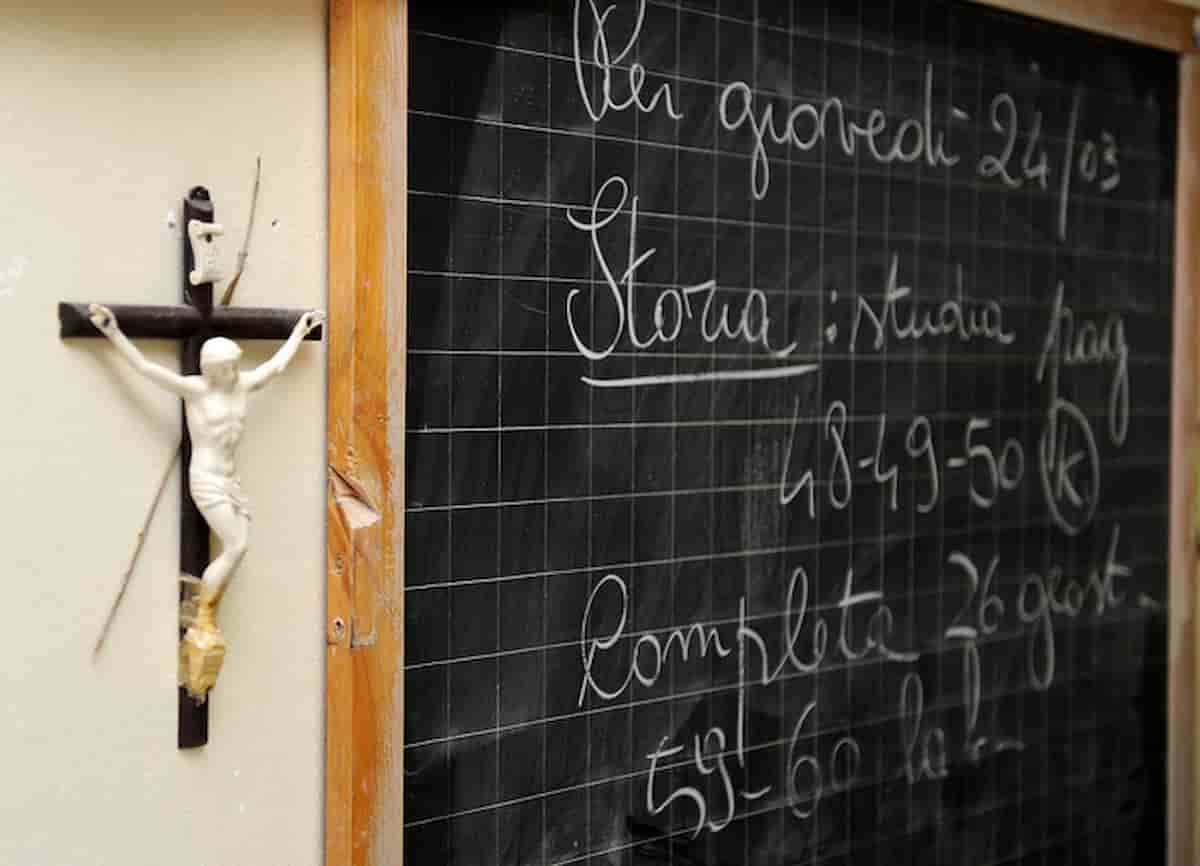 Per giovedì 24/03
Storia : studia pag
48-49-50 K
Completa 26 geost.
59-60 lab.